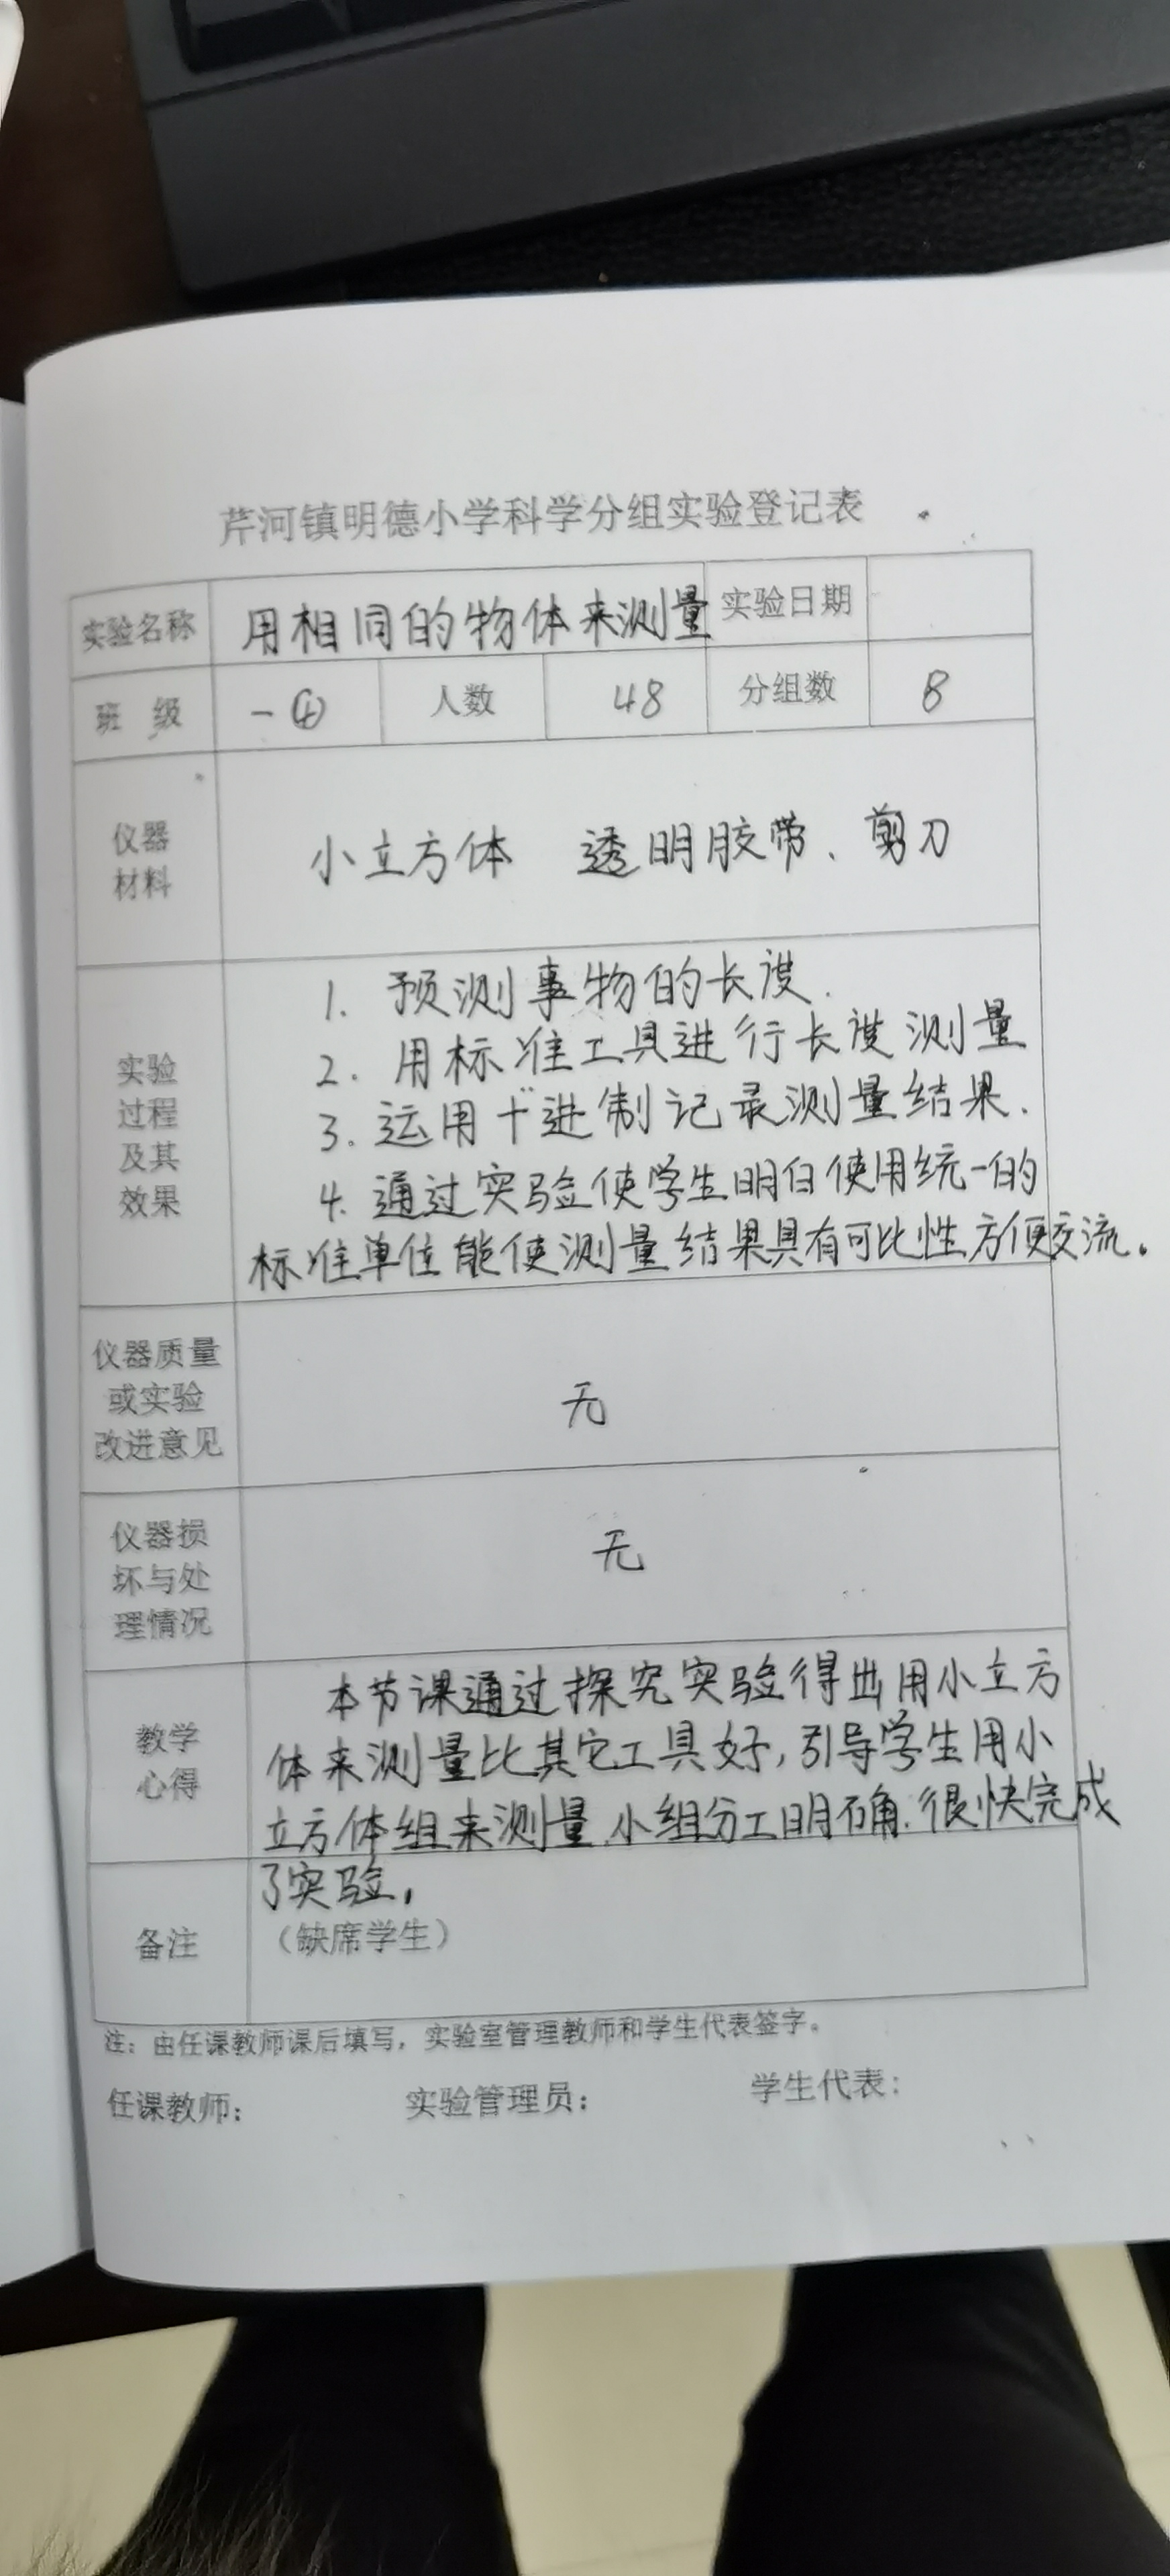 芹河镇明德小学科学分组实验登记表
实验名称 用相同的物体来测量 实验日期
班 级 一④ 人数 48 分组数 8
仪器
材料
小立方体 透明胶带、剪刀
实验
过程
及其
效果
1. 预测事物的长度.
2. 用标准工具进行长度测量
3. 运用十进制记录测量结果.
4. 通过实验使学生明白使用统一的
标准单位能使测量结果具有可比性方便交流。
仪器质量
或实验
改进意见
无
仪器损
坏与处
理情况
无
教学
心得
本节课通过探究实验得出用小立方
体来测量比其它工具好,引导学生用小
立方体组来测量.小组分工明确.很快完成
了实验,
备注
（缺席学生）
注：由任课教师课后填写，实验室管理教师和学生代表签字。
任课教师： 实验管理员： 学生代表：